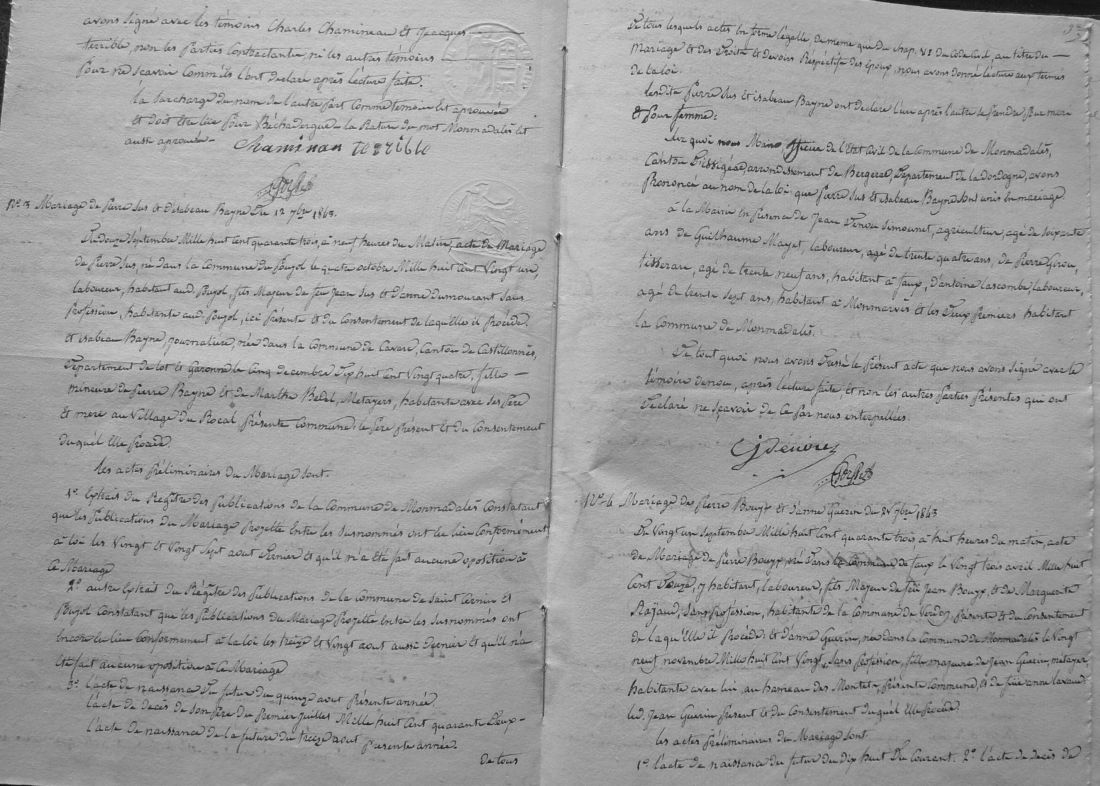 avons signé avec les témoins Charles Chamineau et Jacques
terrible, non les Parties Contractantes ni les autres témoins
Pour ne Scavoir Comme ils l'ont declaré après lecture faite.
la Surcharge du nom de l'autre part Comme témoin est aprouvée
et doit être lue Pour Béchadergue la Rature du mot Monmadalès est
aussi aprouvée
Chaminau terrible
N.° 3 Mariage de Pierre Sus et d'isabeau Bayne Du 12 7bre 1843.
Le Douze Septembre Mille huit Cent quarante trois, à neuf heures du Matin, acte de Mariage
de Pierre Sus, né dans la Commune de Pujol le quatre octobre Mille huit Cent Vingt un,
laboureur, habitant aud. Pujol, fils Majeur de feu Jean Sus et d'anne Dumourant Sans
Profession, habitante aud. Pujol, ici Présente et du Consentement de laquelle il Procède.
et isabeau Bayne, journalière, née dans la Commune de Cavarc, Canton de Castillonnès,
Département de lot et Garonne le Cinq decembre Dix huit Cent Vingt quatre, fille
mineure de Pierre Bayne et de Marthe Bedel, Metayers, habitante avec Ses Père
et mère au Village du Rocal Présente Commune; le Père présent et du Consentement
duquel Elle Procède
les actes Préliminaires du Mariage Sont.
1.° Extrait du Registre des Publications de la Commune de Monmadalès Constatant
que les Publications du Mariage Projetté Entre les Susnommés ont eu lieu Conformément
à la loi les Vingt et Vingt Sept aout Dernier et qu'il n'a été fait aucune oposition à
Ce Mariage
2.° autre Extrait du Régistre des Publications de la Commune de Saint Cernin et
Pujol Constatant que les Publications du Mariage Projetté Entre les Susnommés ont
encore eu lieu Conformément à la loi les treize et Vingt aout aussi Dernier et qu'il n'a
Été fait aucune oposition à Ce Mariage
3.° l'acte de naissance Du futur du quinze aout Présente année.
l'acte de décès de Son Père du Premier juillet Mille huit Cent quarante Deux
l'acte de naissance de la future du treize aout présente année.
de tous
De tous lesquels actes En forme légalle de même que du Chap. VI du Code Civil, au titre du
Mariage et des Droits et Devoirs Respectifs des Époux, nous avons donné lecture aux termes
de la loi.
lesdits Pierre Sus et isabeau Bayne ont declaré l'un après l'autre Se Prendre Pour mari
et Pour femme:
Sur quoi nous Maire officier de l'Etat Civil de la Commune de Monmadalès,
Canton D'issigeac, arrondissement de Bergerac, Département de la Dordogne, avons
Prononcé au nom de la loi que Pierre Sus et isabeau Bayne Sont unis En mariage
à la Mairie En Présence de Jean Denoix Simounet, agriculteur, agé de Soixante
ans de Guilhaume Mayet laboureur, agé de trente quatre ans, de Pierre Girou,
tisserare, agé de trente neuf ans, habitant à faux, d'antoine lascombe, laboureur,
agé de trente Sept ans, habitant à Monmarvès et les Deux Premiers habitant
la Commune de Monmadalès.
De tout quoi nous avons Dressé le Présent acte que nous avons Signé avec le
témoin Denoix, après lecture faite, et non les autres Parties Présentes qui ont
Declaré ne Sçavoir de Ce Par nous interpellées.
N.° 4 Mariage de Pierre Bouyx et d'anne Guérin du 21 7bre 1843
Le Vingt un Septembre Mille huit Cent quarante trois à huit heures du matin, acte
de Mariage de Pierre Bouyx, né Dans la Commune de faux le Vingt trois avril Mille huit
Cent Douze, y habitant, laboureur, fils Majeur de feu Jean Bouyx et de Marguerite
Rajaud, Sans Profession, habitante de la Commune de Verdon Présente et du Consentement
de laquelle il Procède: et d'anne Guérin, née dans la Commune de Monmadalès le Vingt
neuf novembre Mille huit Cent Vingt, Sans Profession, fille majeure de Jean Guérin, métayer,
habitante avec lui au hameau des Montets, présente Commune, et de feue anne lavaud
led. Jean Guérin Présent et du Consentement duquel Elle Procède.
les actes Préliminaires du Mariage Sont
1.° l'acte de naissance du futur du dix huit Du Courant. 2.° l'acte de decès de